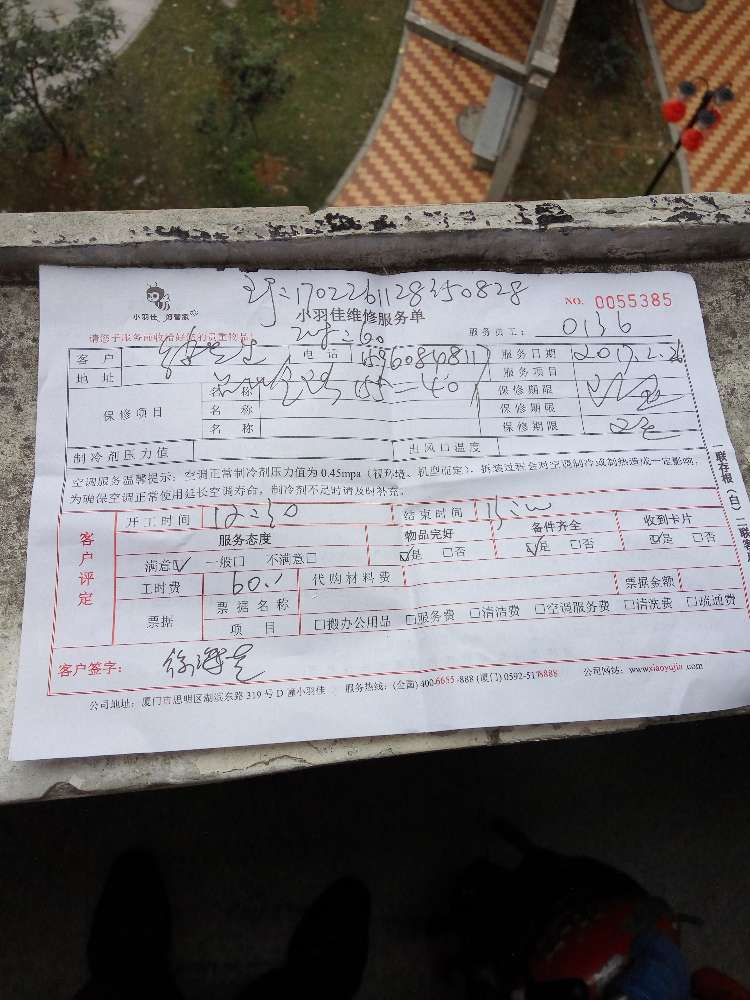 170226112850828
小羽佳 好管家
小羽佳维修服务单
NO. 0055385
服务员工: 0136
客 户 电 话 15960848117 服务日期 2017.2.26
地 址 服务项目
保修项目 名 称 155=40 保修期限
名 称 保修期限
名 称 保修期限
制冷剂压力值 出风口温度
空调服务温馨提示:空调正常制冷剂压力值为 0.45mpa(视环境、机型而定)、拆装过程会对空调制冷或制热造成一定影响,
为确保空调正常使用延长空调寿命,制冷剂不足时请及时补充。
客户评定
开工时间 12:30 结束时间
服务态度 物品完好 备件齐全 收到卡片
满意☑ 一般□ 不满意□ ☑是 □否 ☑是 □否 ☑是 □否
工时费 60 代购材料费
票据 票据名称 票据金额
项 目 □搬办公用品 □服务费 □清洁费 □空调服务费 □清洗费 □疏通费
客户签字:
公司地址:厦门市思明区湖滨东路 319 号 D 座小羽佳 服务热线:(全国) 400-6655-888 (厦门) 0592-5176888 公司网站:www.xiaoyujia.com